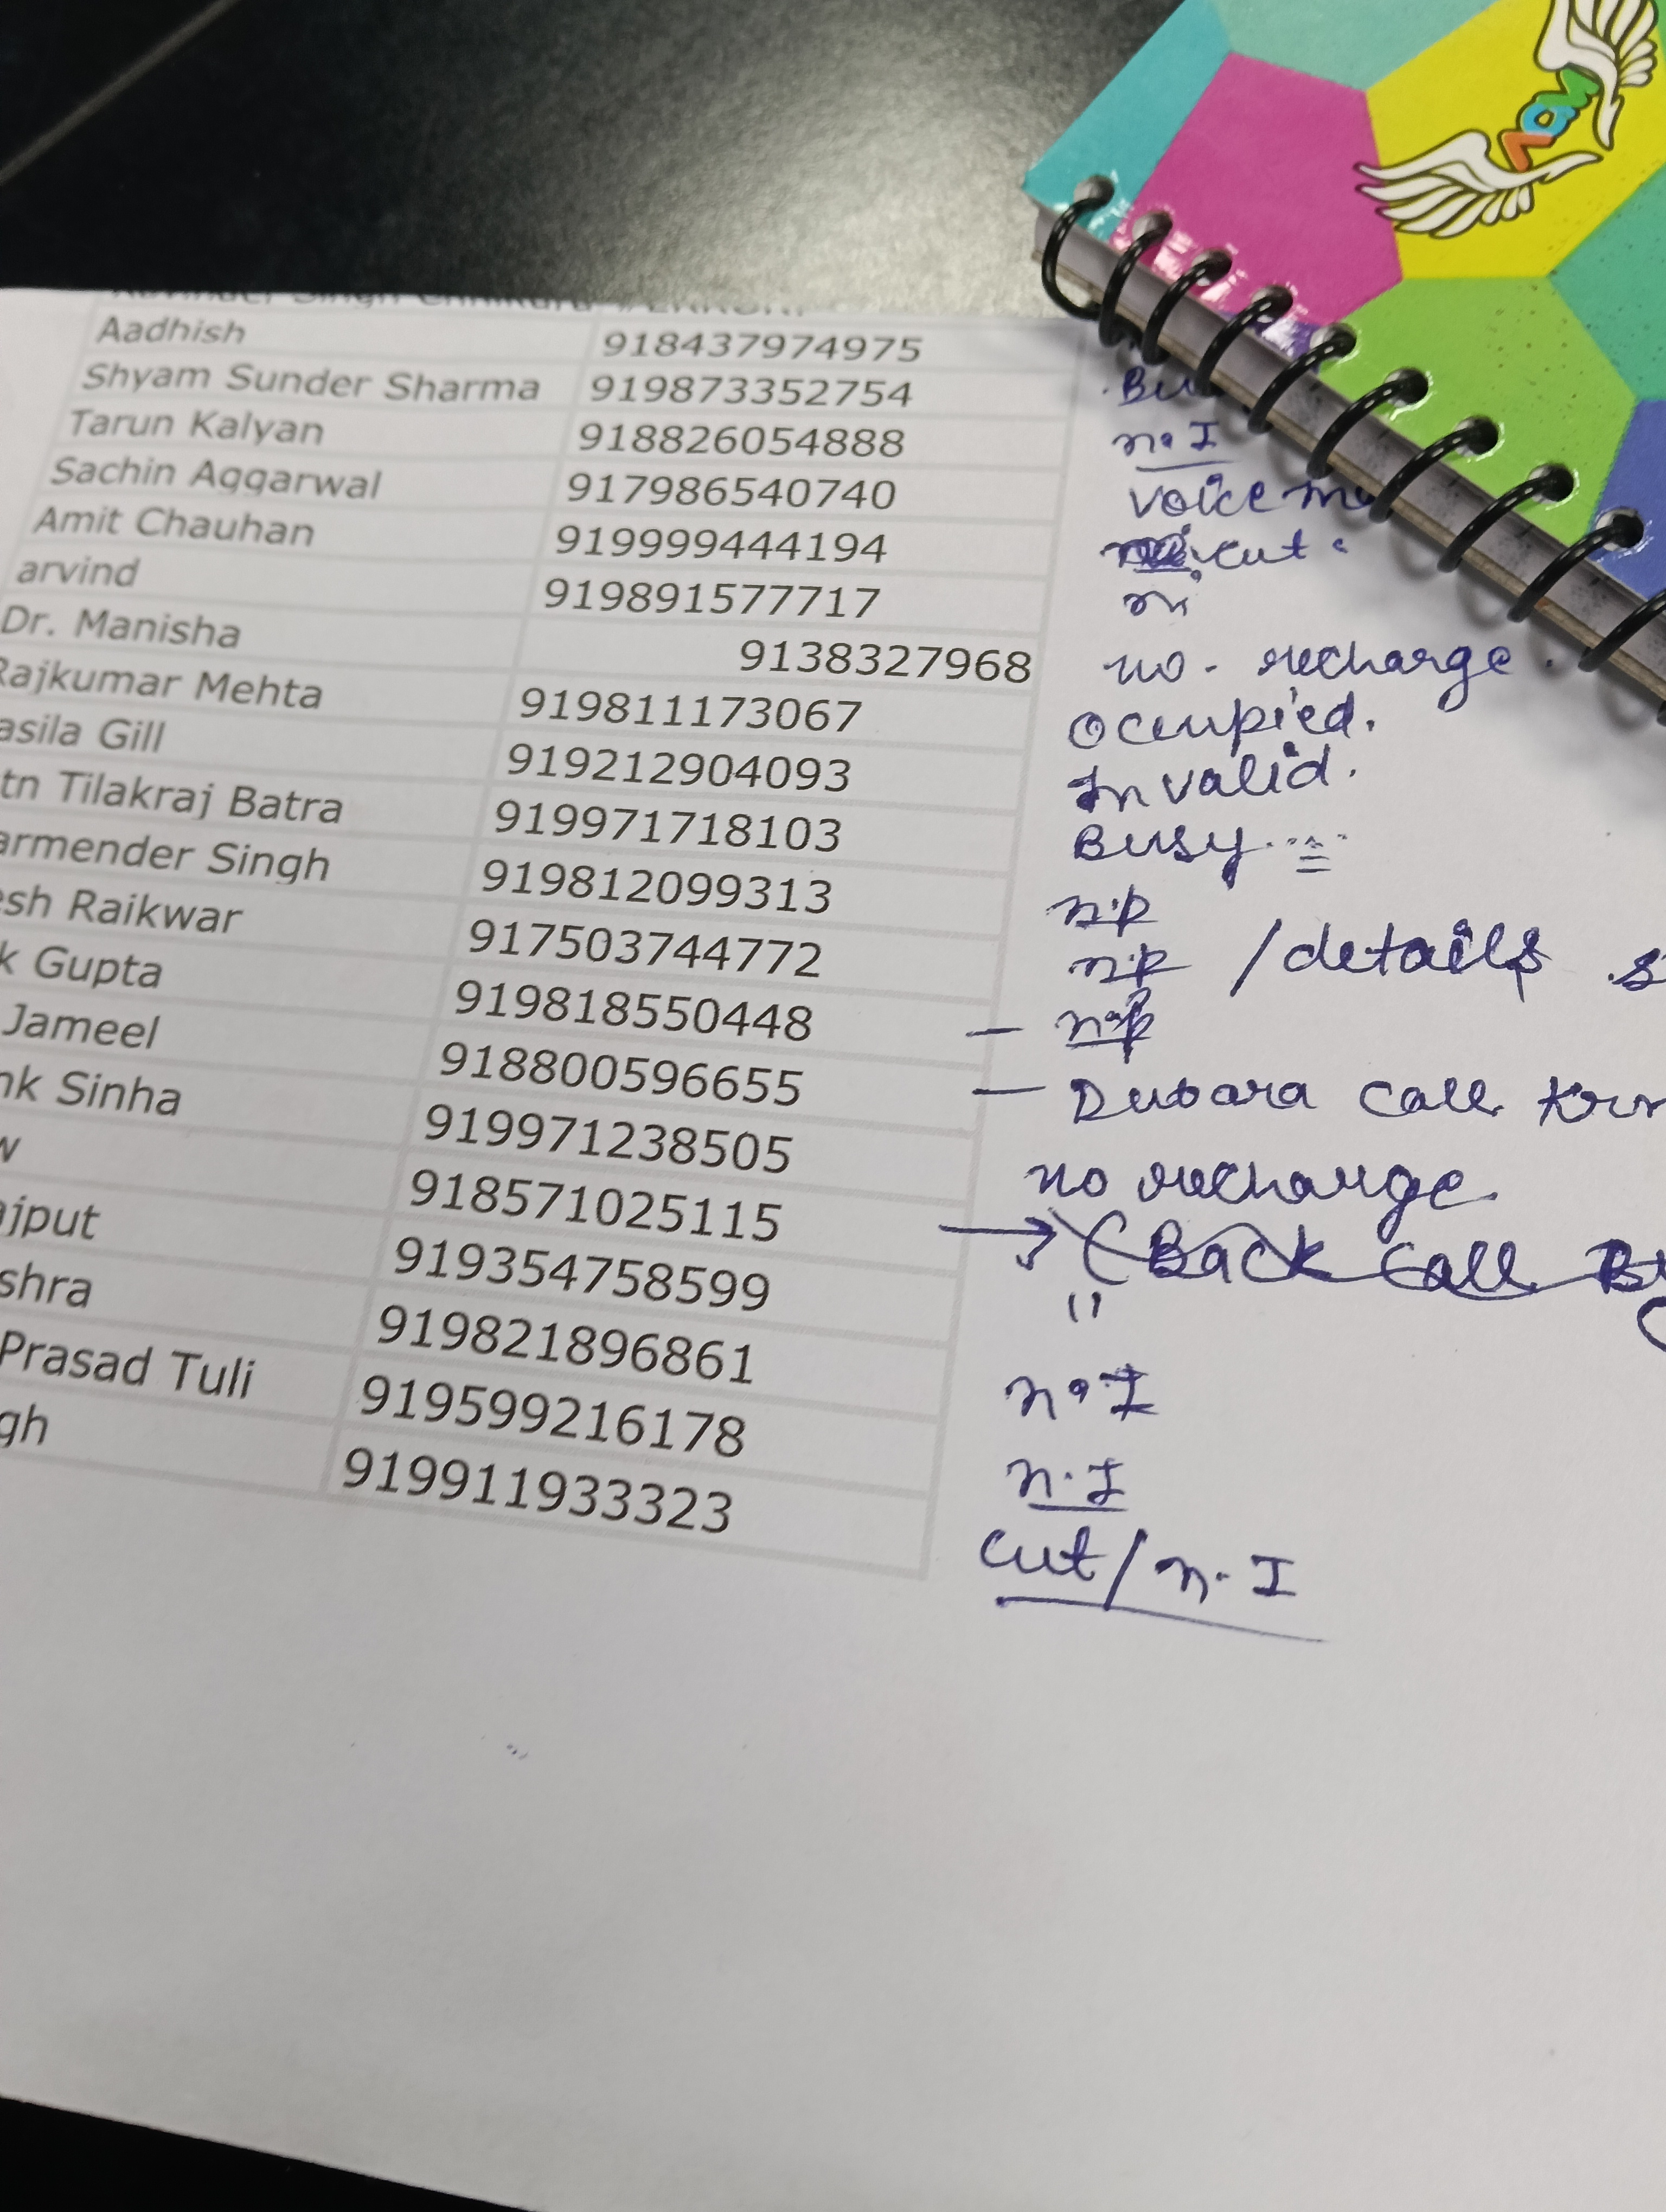 Aadhish 918437974975
Shyam Sunder Sharma 919873352754
Tarun Kalyan 918826054888 n.I
Sachin Aggarwal 917986540740 voice
Amit Chauhan 919999444194 cut
arvind 919891577717
Dr. Manisha 9138327968 no. recharge.
Rajkumar Mehta 919811173067 Occupied.
asila Gill 919212904093 Invalid.
tn Tilakraj Batra 919971718103 Busy
armender Singh 919812099313 n.p
esh Raikwar 917503744772 n.p /details
k Gupta 919818550448 — n.p
Jameel 918800596655 — Dubara call
nk Sinha 919971238505 no recharge
w 918571025115 → (Back Call
ajput 919354758599 "
shra 919821896861 n.I
Prasad Tuli 919599216178 n.I
gh 919911933323 cut/n.I